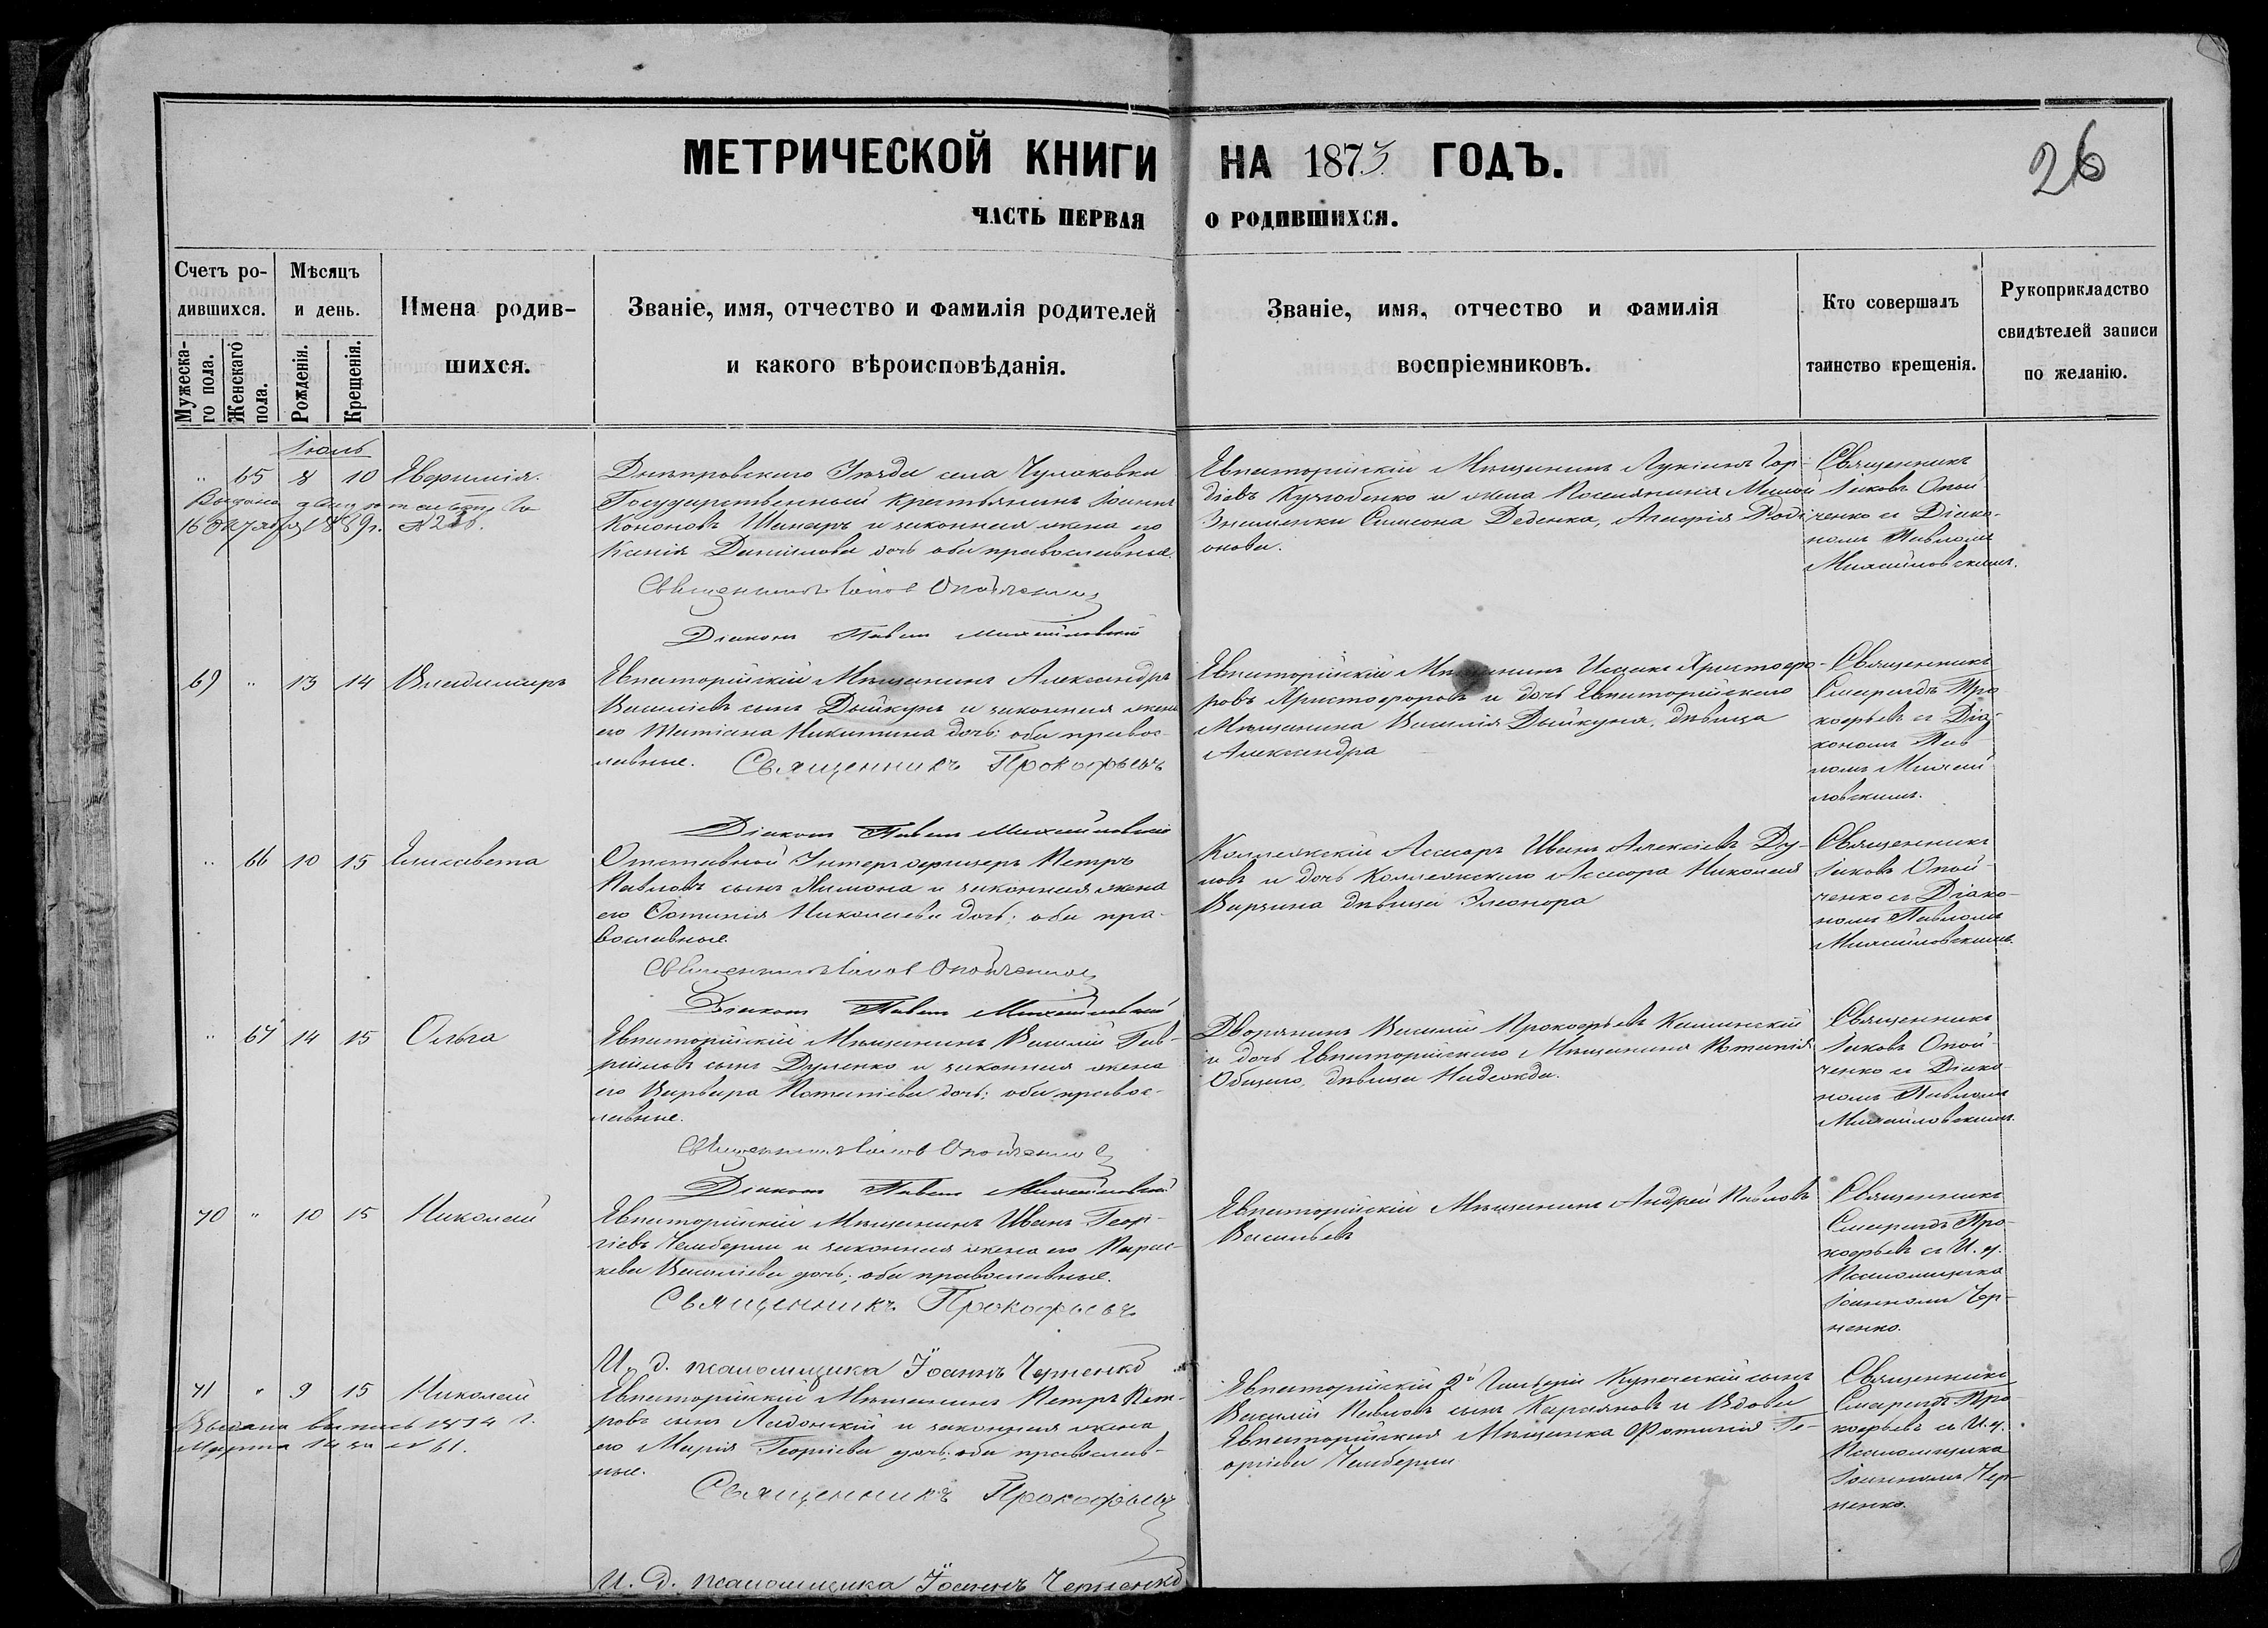 МЕТРИЧЕСКОЙ КНИГИ НА 1873 ГОДЪ.
26
ЧАСТЬ ПЕРВАЯ О РОДИВШИХСЯ.
Счетъ ро-
дившихся.
Мужеска-
го пола.
Женскаго
пола.
Мѣсяцъ
и день.
Рожденія.
Крещенія.
Имена родив-
шихся.
Званіе, имя, отчество и фамилія родителей
и какого вѣроисповѣданія.
Званіе, имя, отчество и фамилія
воспріемниковъ.
Кто совершалъ
таинство крещенія.
Рукоприкладство
свидѣтелей записи
по желанію.
Іюль
" 65 8 10
16 Октября 1889 г. №
Днѣпровскаго Уѣзда села Чулаковки
Государственный крестьянинъ Іоаннъ
Кононовъ и законная жена его
Данилова дочь оба православные.
Священникъ Іаковъ Опойченко
Діаконъ Павелъ Михайловскій
Евпаторійскій Мѣщанинъ Лукіанъ Гор-
діевъ и жена Поселянина Малой
Знаменки Симеона Деденка, Агафія Роді-
онова.
Священникъ
Іаковъ Опой-
ченко съ Діако-
номъ Павломъ
Михайловскимъ.
69 " 13 14 Владимиръ
Евпаторійскій Мѣщанинъ Александръ
Василіевъ сынъ Дыйкунъ и законная жена
его Татіана Никитина дочь: оба правос-
лавные.
Священникъ Прокофьевъ
Діаконъ Павелъ Михайловскій
Евпаторійскій Мѣщанинъ Христофо-
ровъ Христофоровъ и дочь Евпаторійскаго
Мѣщанина Василія Дыйкуна, дѣвица
Александра
Священникъ
Смарагдъ Про-
кофьевъ съ Діа-
кономъ Пав-
ломъ Михай-
ловскимъ.
" 66 10 15 Елисавета
Отставной Унтеръ офицеръ Петръ
Павловъ сынъ и законная жена
его Фотинія Николаева дочь; оба пра-
вославные.
Священникъ Іаковъ Опойченко
Діаконъ Павелъ Михайловскій
Коллежскій Ассесоръ Иванъ Алексіевъ Ду-
новъ и дочь Коллежскаго Ассесора Николая
дѣвица Элеонора
Священникъ
Іаковъ Опой-
ченко съ Діако-
номъ Павломъ
Михайловскимъ.
" 67 14 15 Ольга
Евпаторійскій Мѣщанинъ Василій Гав-
риловъ сынъ Дуленко и законная жена
его Варвара Потапіева дочь: оба правос-
лавные.
Священникъ Іаковъ Опойченко
Діаконъ Павелъ Михайловскій
Дворянинъ Василій Прокофьевъ
и дочь Евпаторійскаго Мѣщанина Потапія
Общаго, дѣвица Надежда.
Священникъ
Іаковъ Опой-
ченко съ Діако-
номъ Павломъ
Михайловскимъ.
70 " 10 15 Николай
Евпаторійскій Мѣщанинъ Иванъ Геор-
гіевъ Челеберли и законная жена его Парас-
кева Василіева дочь; оба православные.
Священникъ Прокофьевъ
И. д. псаломщика Іоаннъ Черненко
Евпаторійскій Мѣщанинъ Андрей Павловъ
Васильевъ
Священникъ
Смарагдъ Про-
кофьевъ съ И. д.
Псаломщика
Іоанномъ Чер-
ненко.
71 " 9 15 Николай
Выдана выпись 1874 г.
Марта 14 за № 61.
Евпаторійскій Мѣщанинъ Петръ Пет-
ровъ сынъ Ладонскій и законная жена
его Марія Георгіева дочь; оба православ-
ные.
Священникъ Прокофьевъ
И. д. псаломщика Іоаннъ Черненко
Евпаторійскій 2й Гильдіи Купеческій сынъ
Василій Павловъ сынъ и Вдова
Евпаторійская Мѣщанка Фотинія Ге-
оргіева Челеберли
Священникъ
Смарагдъ Про-
кофьевъ съ И. д.
Псаломщика
Іоанномъ Чер-
ненко.